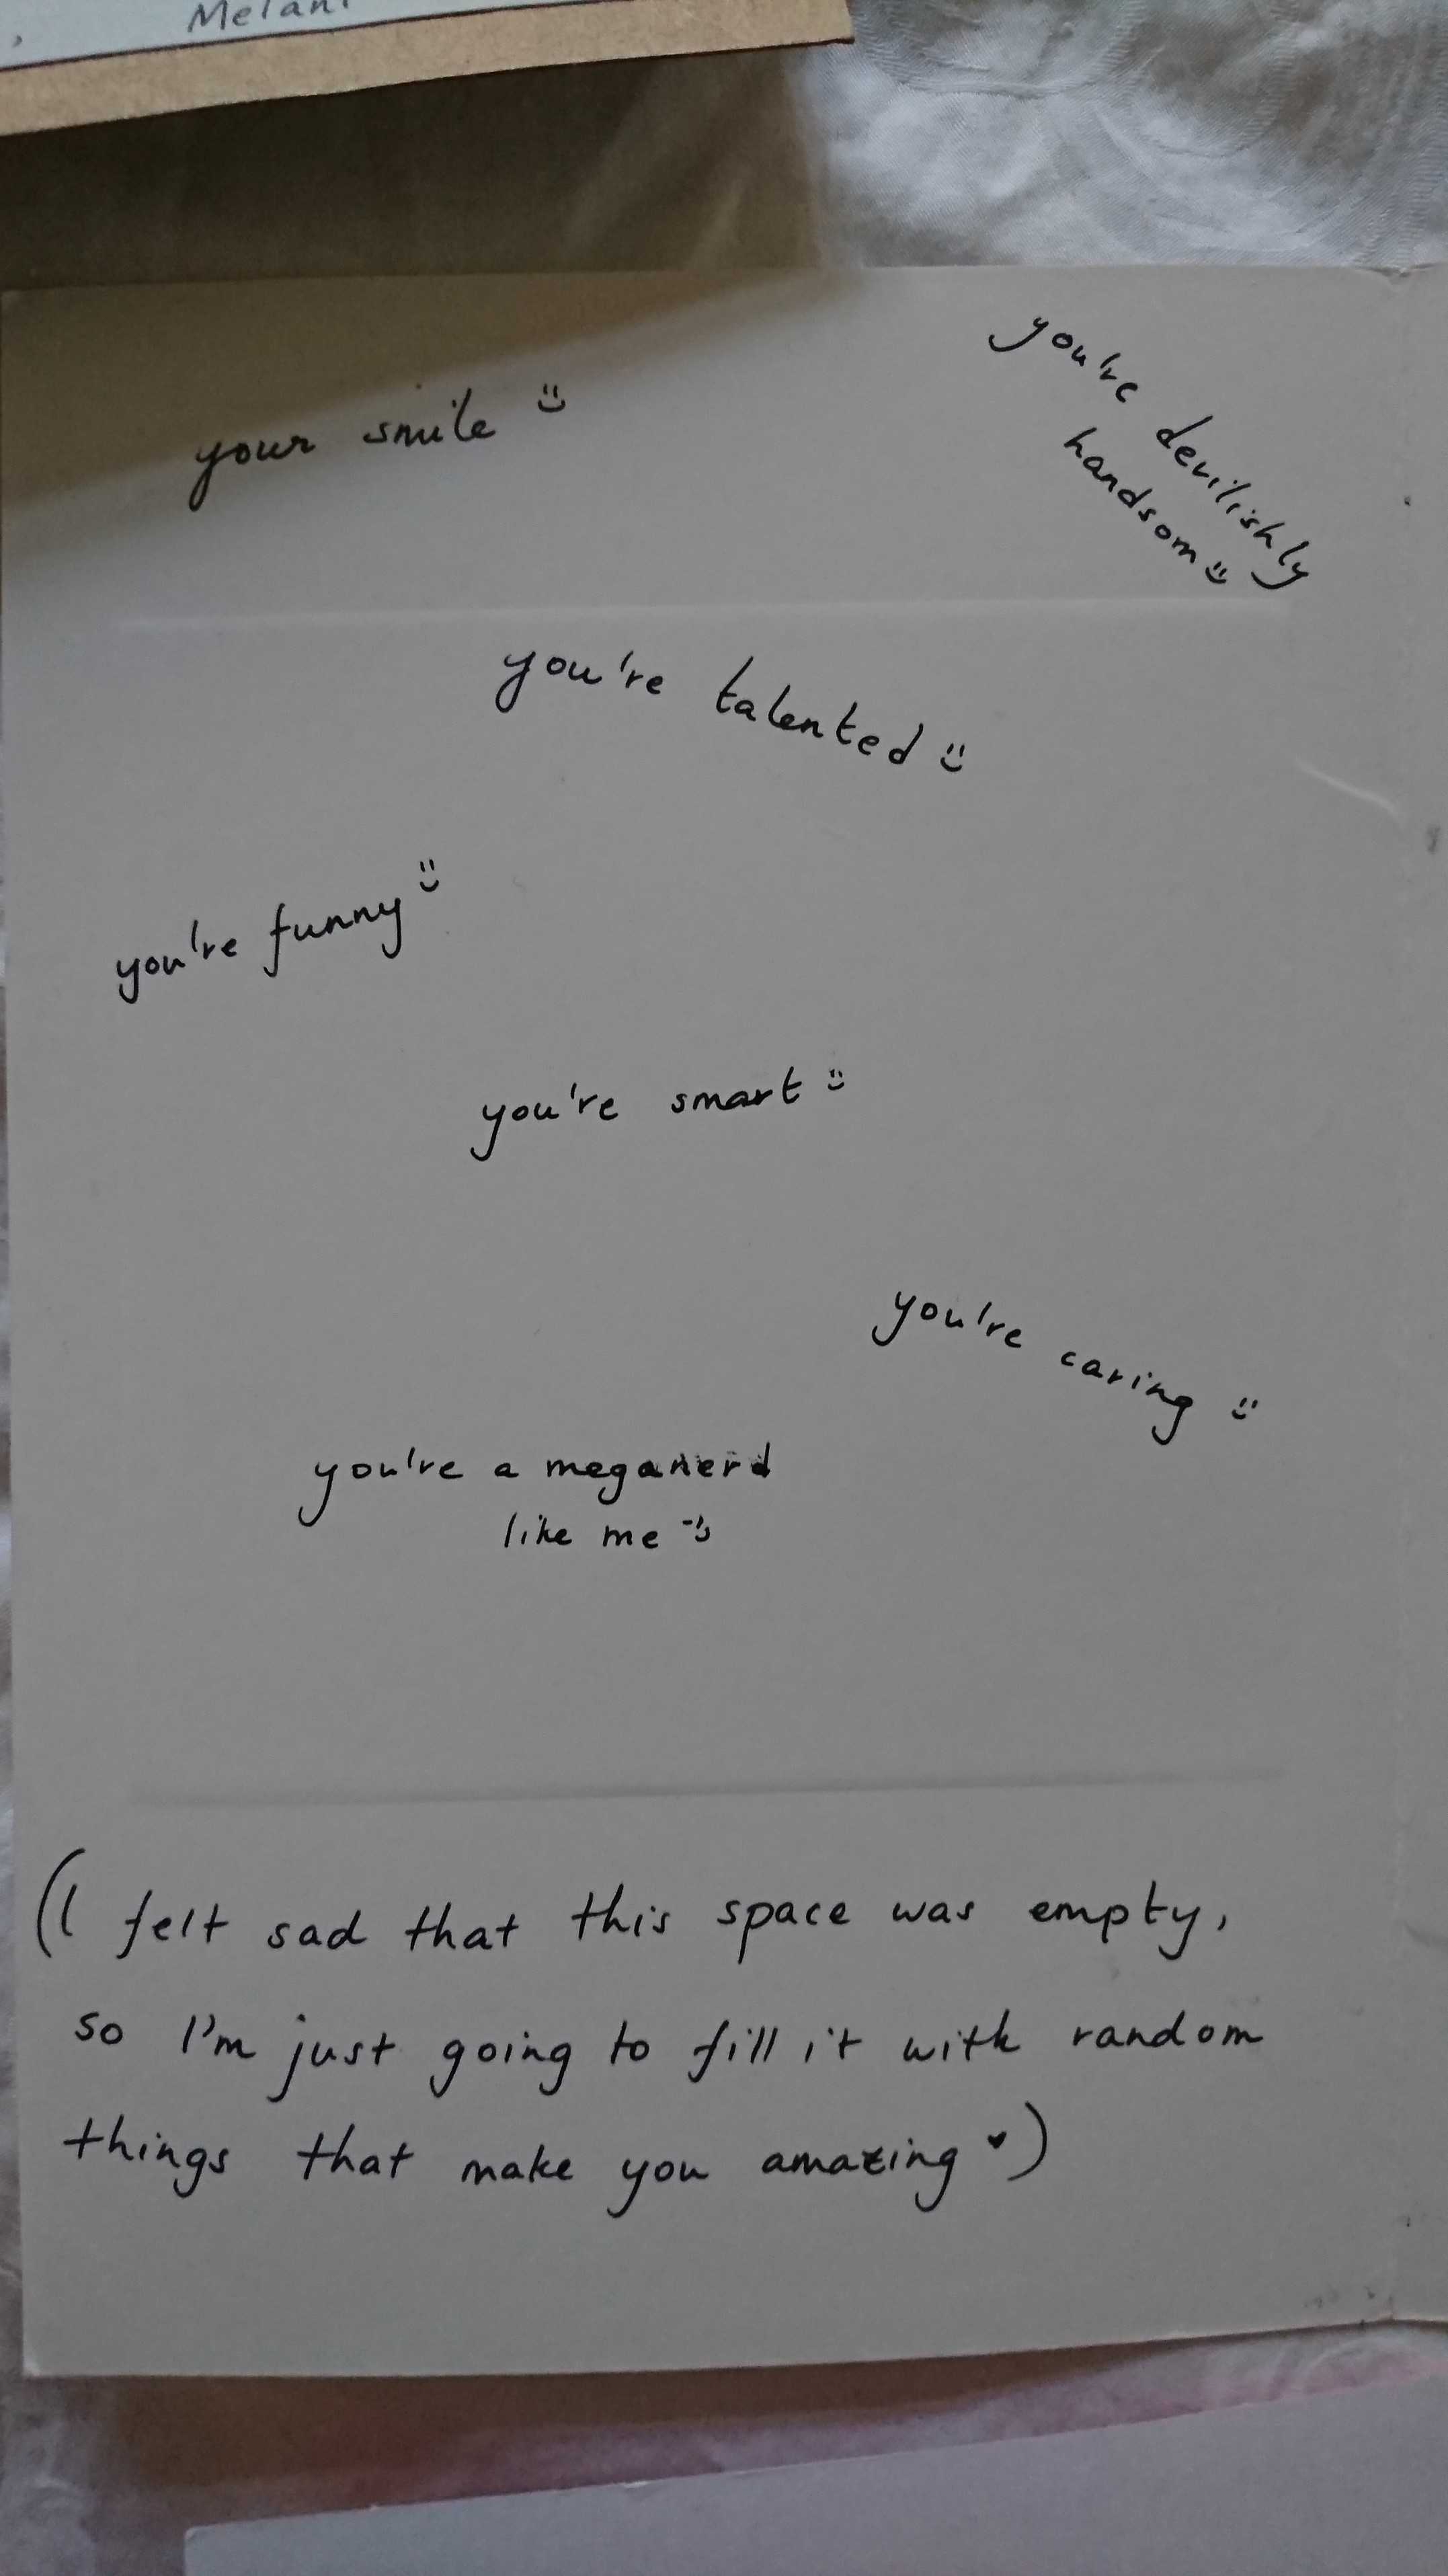 Melani
your smile :)
you're devilishly
handsom :)
you're talented :)
you're funny :)
you're smart :)
you're caring :)
you're a meganerd
like me :)
(I felt sad that this space was empty,
so I'm just going to fill it with random
things that make you amazing ♥)